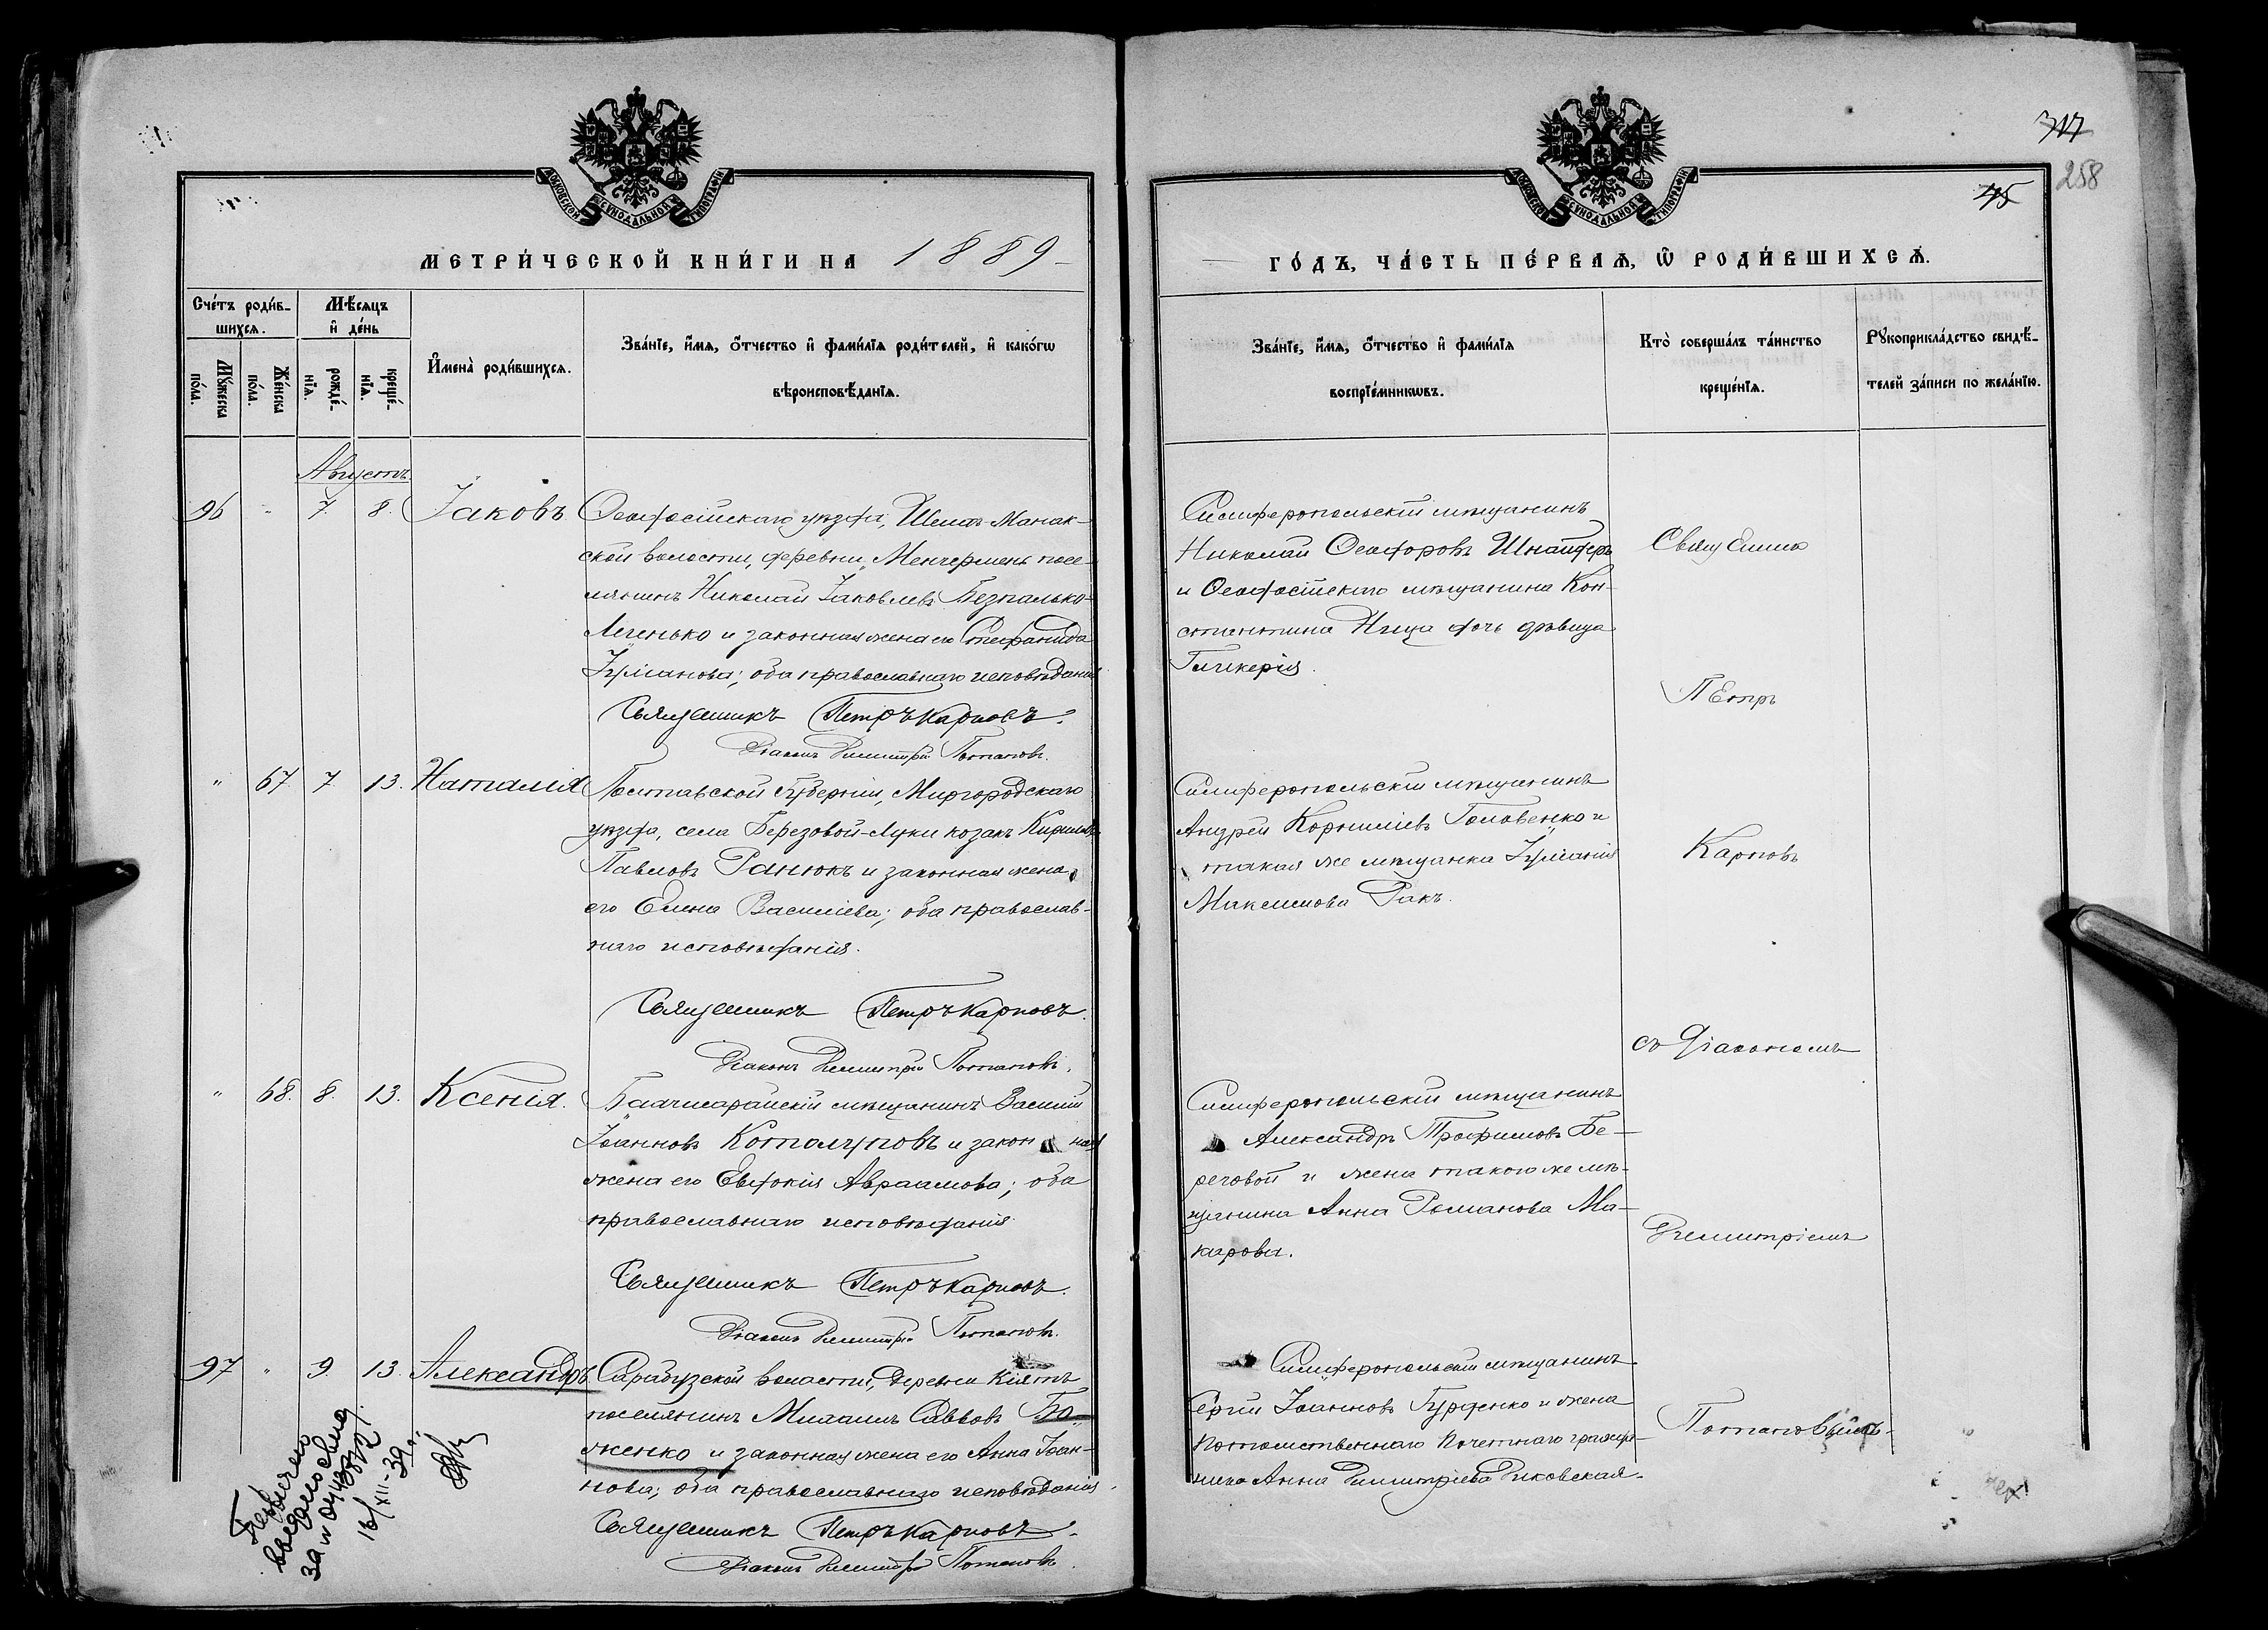 317
258
МОСКОВСКОЙ СѴНОДАЛЬНОЙ ТИПОГРАФІИ
МОСКОВСКОЙ СѴНОДАЛЬНОЙ ТИПОГРАФІИ
МЕТРИ́ЧЕСКОЙ КНИ́ГИ НА 1889
ГО́ДЪ, ЧА́СТЬ ПЕ́РВАѦ, Ѿ РОДИ́ВШИХСѦ.
Сче́тъ роди́в-
шихсѧ.
Мѣ́сѧцъ
и҆ де́нь
Мꙋ́жеска
по́ла.
Же́нска
по́ла.
рожде́-
нїѧ.
креще́-
нїѧ.
И҆мена̀ роди́вшихсѧ.
Зва́нїе, и҆́мѧ, ѻ҆́тчество и҆ фами́лїѧ роди́телей, и҆ како́гѡ
вѣроисповѣ́данїѧ.
Зва́нїе, и҆́мѧ, ѻ҆́тчество и҆ фами́лїѧ
воспрїе́мникѡвъ.
Кто̀ соверша́лъ та́инство
креще́нїѧ.
Рꙋкоприкла́дство свидѣ́-
телей за́писи по жела́нїю.
Августъ
96 " 7. 8. Іаковъ. Ѳеодосійскаго уѣзда, Шейх-Монак-
ской волости, деревни Менчермень посе-
лянинъ Николай Іаковлевъ Безпалько-
Легенько и законная жена его Стефанида
Іуліанова; оба православнаго исповѣданія
Священникъ Петръ Карповъ.
Діаконъ Димитрій Потаповъ.
Симферопольскій мѣщанинъ
Николай Ѳеодоровъ Шнайдеръ
и Ѳеодосійскаго мѣщанина Кон-
стантина Ница дочь дѣвица
Гликерія.
Священно
Петръ
" 67 7 13. Наталія Полтавской губерніи, Миргородскаго
уѣзда, села Березовой-Луки козакъ Кириллъ
Павловъ Ранюкъ и законная жена
его Елена Василіева; оба православ-
наго исповѣданія.
Священникъ Петръ Карповъ.
Діаконъ Димитрій Потаповъ.
Симферопольскій мѣщанинъ
Андрей Корниліевъ Головенко и
такая же мѣщанка Іуліанія
Максимова Ракъ.
Карповъ
съ Діакономъ
" 68. 8. 13. Ксенія. Бахчисарайскій мѣщанинъ Василій
Іоанновъ Котолуповъ и законная
жена его Евдокія Авраамова; оба
православнаго исповѣданія.
Священникъ Петръ Карповъ.
Діаконъ Димитрій Потаповъ.
Симферопольскій мѣщанинъ
Александръ Трофимовъ Бе-
реговой и жена такого же мѣ-
щанина Анна Романова Ма-
карова.
Димитріемъ
97 " 9. 13. Александръ. Сарабузской волости, деревни Кіятъ
поселянинъ Михаилъ Саввовъ Бо-
женко и законная жена его Анна Іоан-
нова; оба православнаго исповѣданія.
Священникъ Петръ Карповъ.
Діаконъ Димитрій Потаповъ.
Симферопольскій мѣщанинъ
Сергій Іоанновъ Гурденко и жена
потомственнаго почетнаго гражда-
нина Анна Димитріева Диковская.
Потаповымъ.
16/XII-39 г.